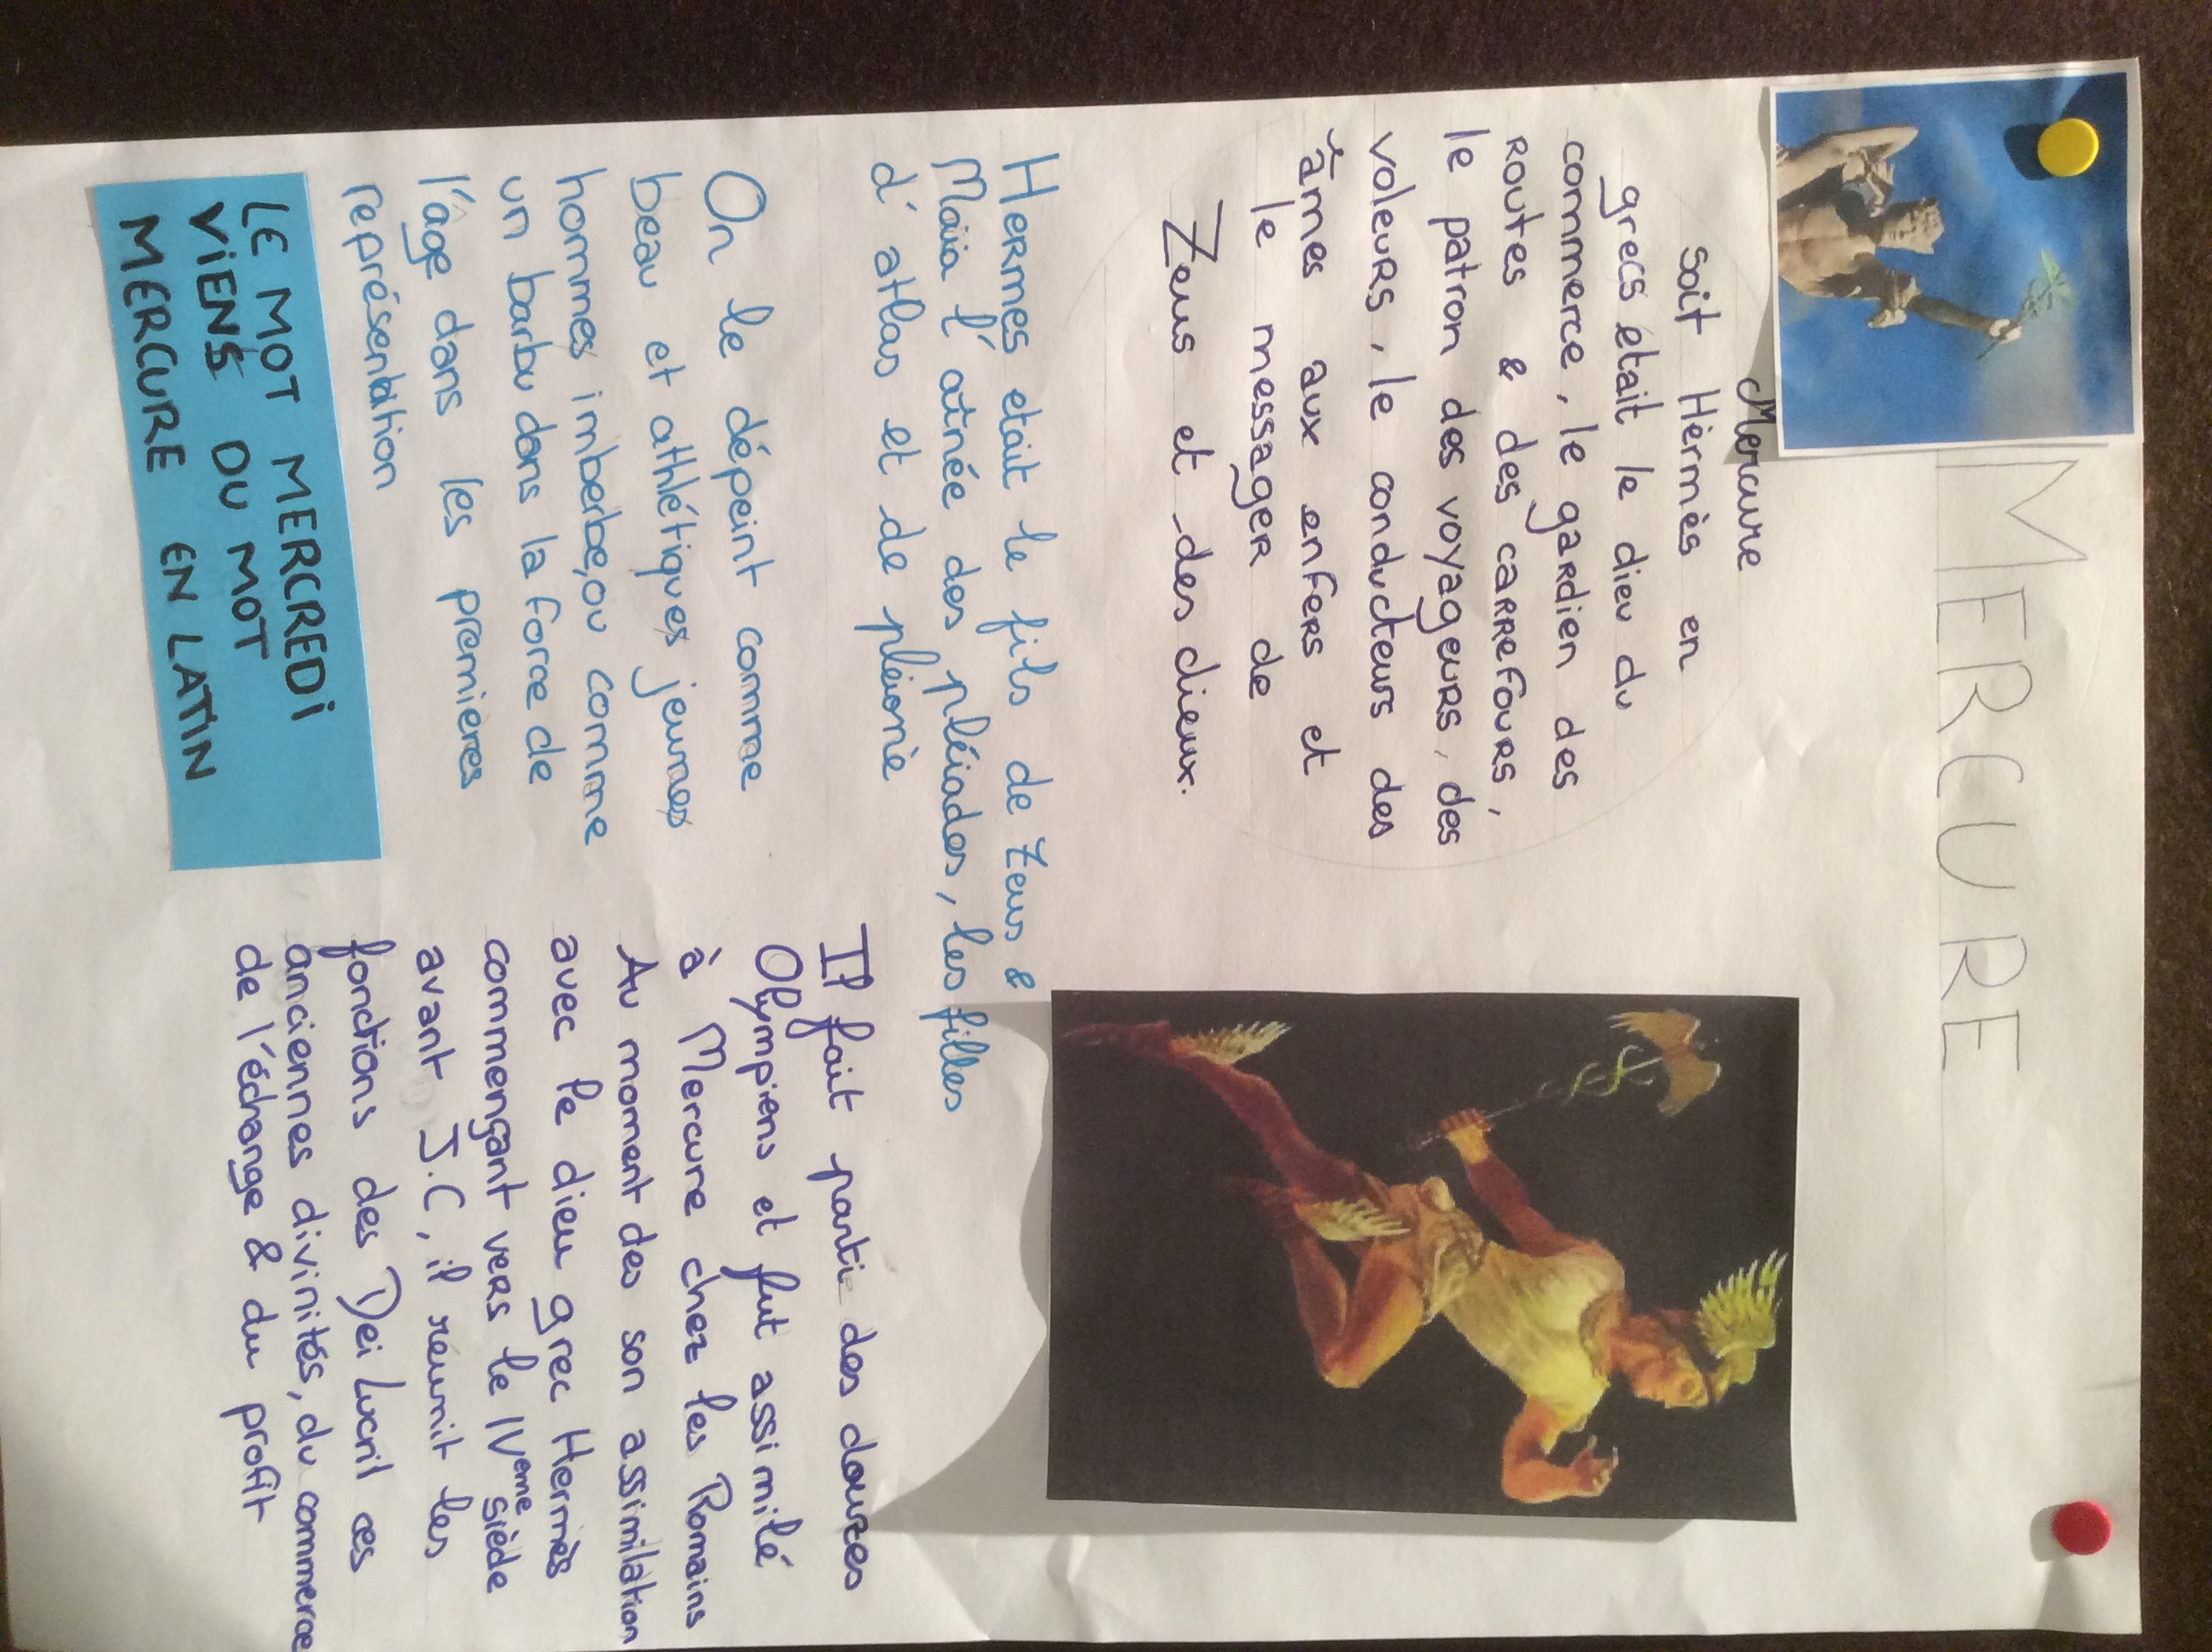 MERCURE
Mercure
soit Hèrmès en
grecs était le dieu du
commerce, le gardien des
routes & des carrefours,
le patron des voyageurs, des
voleurs, le conducteurs des
âmes aux enfers et
le messager de
Zeus et des dieux.
Hermès etait le fils de Zeus &
Maïa l'ainée des pléiades, les filles
d'atlas et de pléionè
On le dépeint comme
beau et athlétiques jeunes
hommes imberbe, ou comme
un barbu dans la force de
l'âge dans les premieres
représentation
LE MOT MERCREDI
VIENS DU MOT
MERCURE EN LATIN
Il fait partie des douzes
Olympiens et fut assimilé
à Mercure chez les Romains
Au moment des son assimilation
avec le dieu grec Hermès
commençant vers le IVeme siècle
avant J.C, il réunit les
fonctions des Dei Lucril ces
anciennes divinités, du commerce
de l'échange & du profit